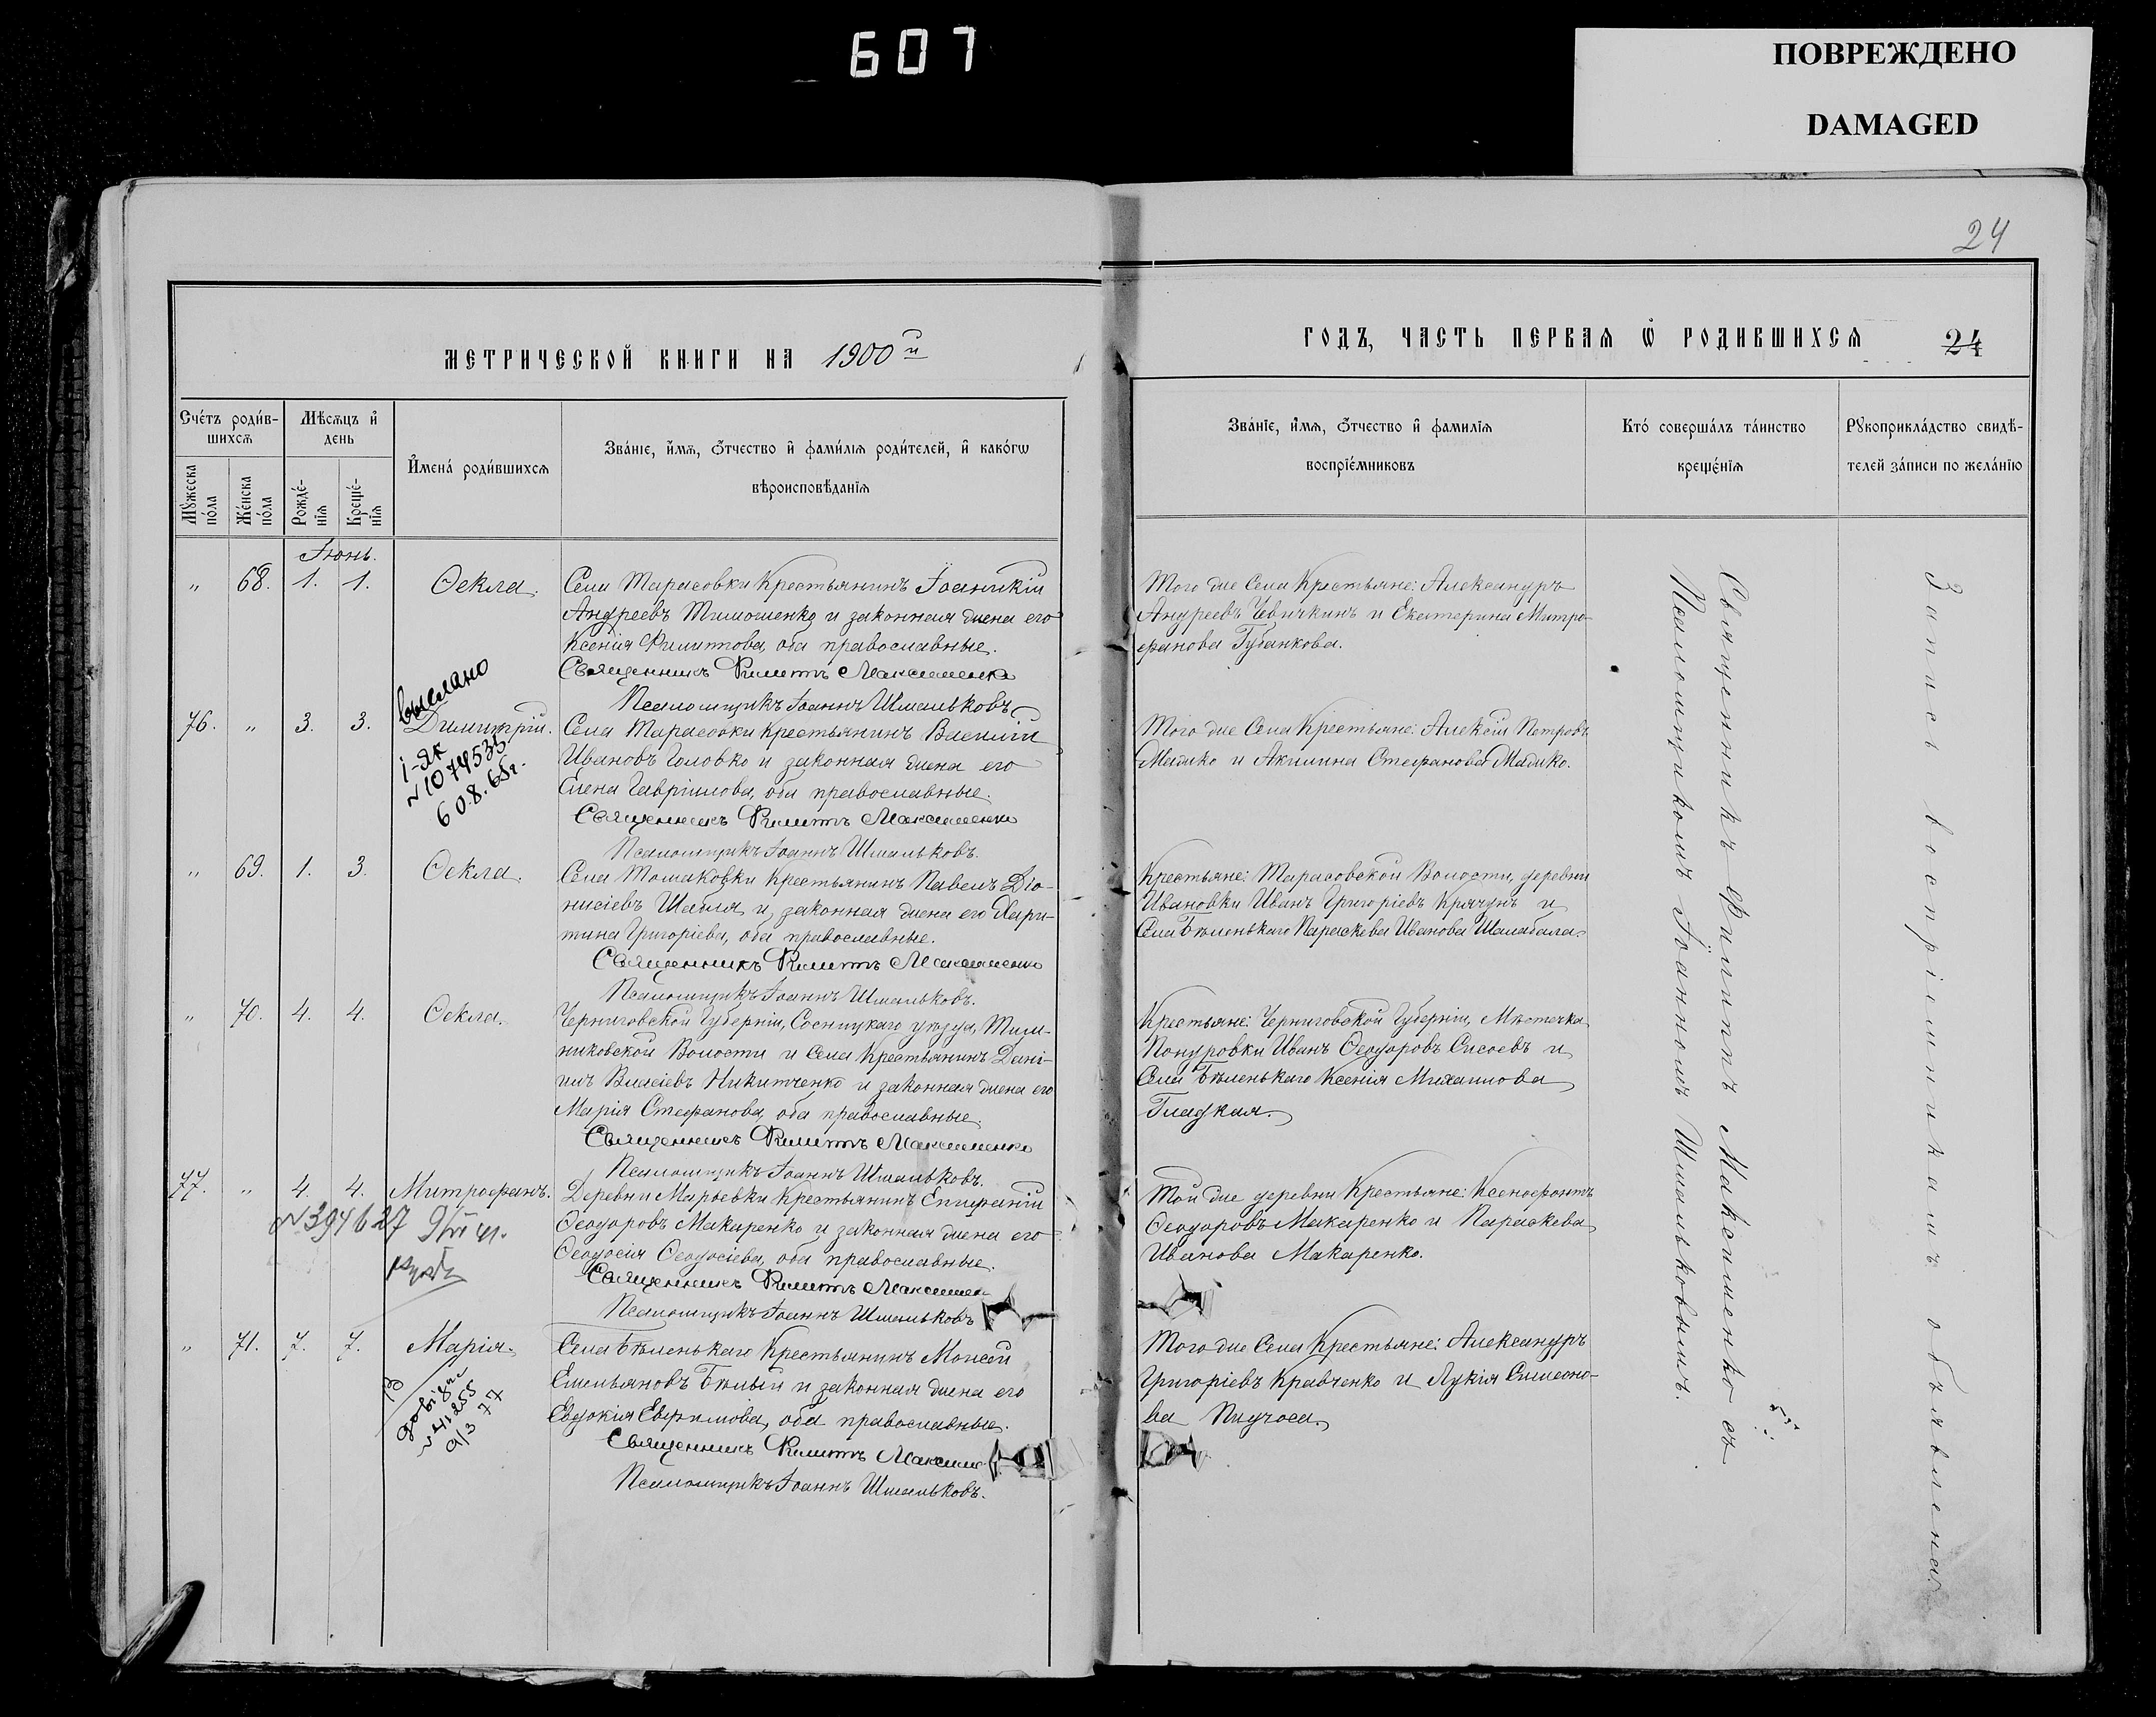 607
ПОВРЕЖДЕНО
DAMAGED
24
МЕТРИЧЕСКОЙ КНИГИ НА 1900й
ГОДЪ, ЧАСТЬ ПЕРВАѦ Ѿ РОДИВШИХСѦ 24
Счётъ роди́вшихсѧ
Мꙋжеска по́ла
Же́нска по́ла
Мѣ́сѧцъ и҆ день
Рожде́нїѧ
Креще́нїѧ
И҆мена̀ роди́вшихсѧ
Зва́нїе, и҆́мѧ, ѻ҆́тчество и҆ фами́лїѧ роди́телей, и҆ како́гѡ
вѣроисповѣ́данїѧ
Зва́нїе, и҆́мѧ, ѻ҆́тчество и҆ фамилїѧ
воспрїе́мниковъ
Кто́ соверша́лъ та́инство
креще́нїѧ
Рꙋкоприкла́дство свидѣ́-
телей за́писи по жела́нїю
Іюнь.
„ 68. 1. 1. Ѳекла. Села Тарасовки Крестьянинъ Іоаникій
Андреевъ Тимошенко и законная жена его
Ксенія Филиппова, оба православные.
Священникъ Филиппъ Максименко
Псаломщикъ Іоаннъ Шмальковъ.
Того же Села Крестьяне: Александръ
Андреевъ Чевичкинъ и Екатерина Митро-
фанова Губанкова.
выслано
76. „ 3. 3. Димитрій. Села Тарасовки Крестьянинъ Василій
Ивановъ Головко и законная жена его
Елена Гавриилова, оба православные.
Священникъ Филиппъ Максименко
Псаломщикъ Іоаннъ Шмальковъ.
І-ЯК
№1074535
60.8.65г.
Того же Села Крестьяне: Алексій Петровъ
Мадико и Акилина Стефанова Мадико.
„ 69. 1. 3. Ѳекла. Села Томаковки Крестьянинъ Павелъ Діо-
нисіевъ Шабля и законная жена его Хари-
тина Григоріева, оба православные.
Священникъ Филиппъ Максименко
Псаломщикъ Іоаннъ Шмальковъ.
Крестьяне: Тарасовской Волости, деревни
Ивановки Иванъ Григоріевъ Крячунъ и
Села Бѣленькаго Параскева Иванова Шалабала.
„ 70. 4. 4. Ѳекла. Черниговской Губерніи, Сосницкаго уѣзда,
никовской Волости и Села Крестьянинъ Дані-
илъ Власіевъ Никитченко и законная жена его
Марія Стефанова, оба православные.
Священникъ Филиппъ Максименко
Псаломщикъ Іоаннъ Шмальковъ.
Крестьяне: Черниговской Губерніи, Мѣстечка
Понуровки Иванъ Ѳеодоровъ Сисоевъ и
Села Бѣленькаго Ксенія Михаилова
Гладкая.
77. „ 4. 4. Митрофанъ. Деревни Марьевки Крестьянинъ Епифаній
Ѳеодоровъ Макаренко и законная жена его
Ѳеодосія Ѳеодосіева, оба православные.
Священникъ Филиппъ Максимен
Псаломщикъ Іоаннъ Шмальковъ
№394627
Той же деревни Крестьяне: Ксенофонтъ
Ѳеодоровъ Макаренко и Параскева
Иванова Макаренко.
„ 71. 7. 7. Марія. Села Бѣленькаго Крестьянинъ Моисей
Емельяновъ Бѣлый и законная жена его
Евдокія Евфимова, оба православные.
Священникъ Филиппъ Максим
Псаломщикъ Іоаннъ Шмальковъ.
довідка
№41255
9/3 77
Того же Села Крестьяне: Александръ
Григоріевъ Кравченко и Лукія Симеоно-
ва
Священникъ Филиппъ Максименко съ
Псаломщикомъ Іоанномъ Шмальковымъ.
Запись воспріемникамъ объявлена.